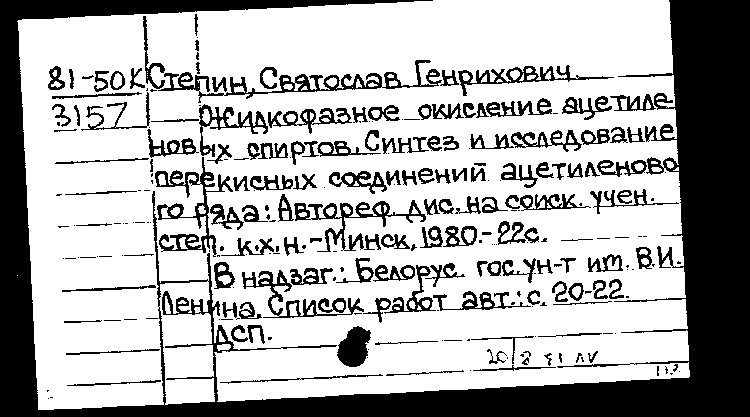 81-50К Степин, Святослав Генрихович.
3157 Жидкофазное окисление ацетиле-
новых спиртов. Синтез и исследование
перекисных соединений ацетиленово-
го ряда: Автореф. дис. на соиск. учен.
степ. к.х.н. - Минск, 1980. - 22с.
В надзаг.: Белорус. гос. ун-т им. В.И.
Ленина. Список работ авт.: с. 20-22.
ДСП.
20/8